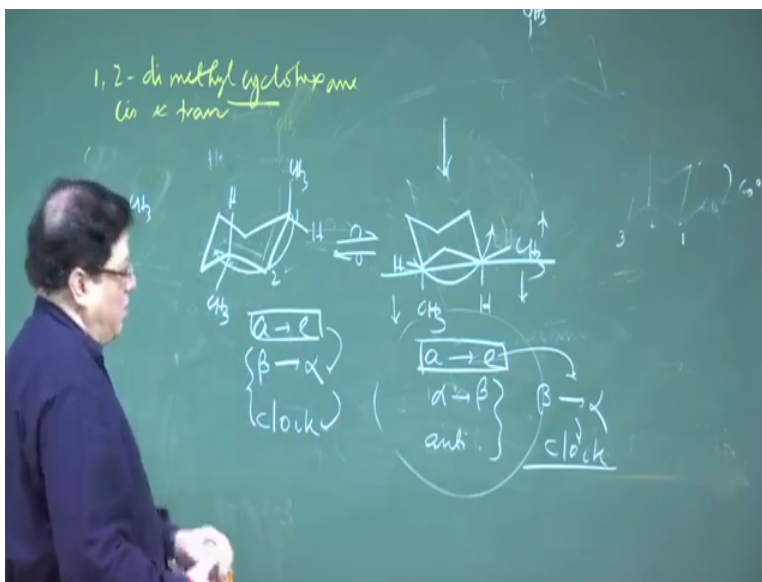 1,2-dimethyl cyclohexane
cis & tran
CH3
CH3
H
H
2
CH3
H
CH3
CH3
H
3
1
a → e
β → α
clock
a → e
α → β
anti
β → α
clock